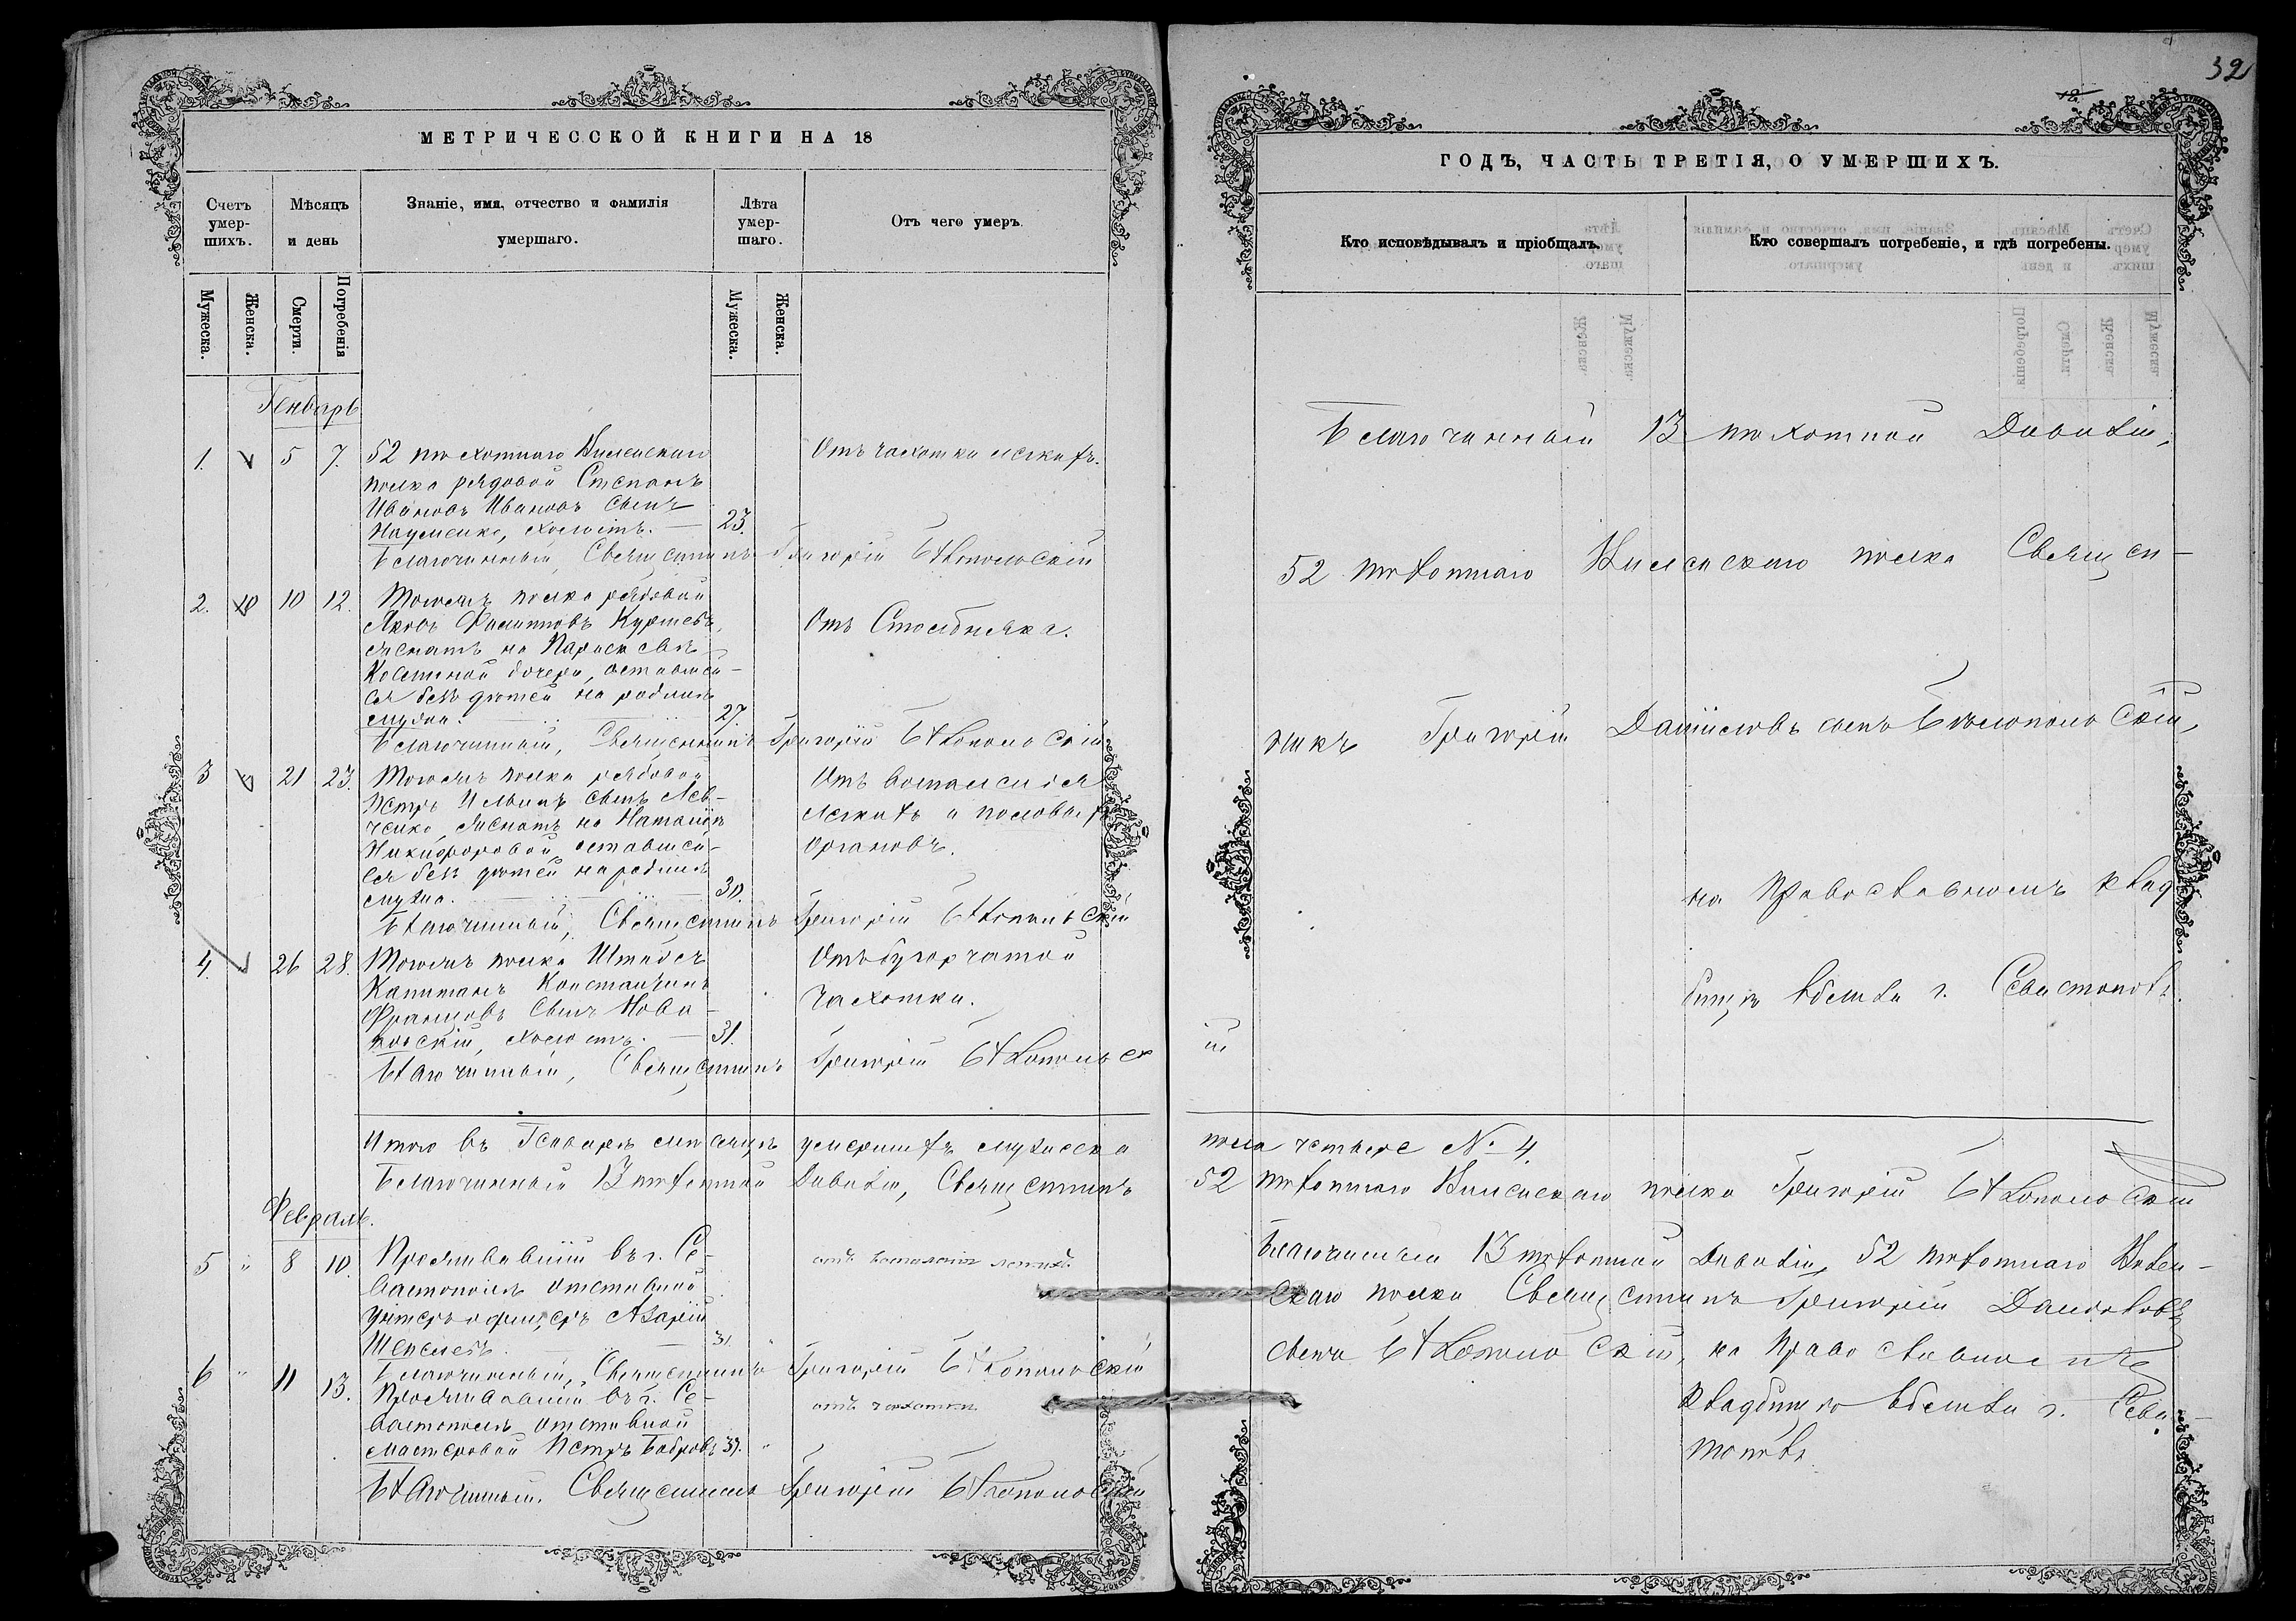 32
МЕТРИЧЕССКОЙ КНИГИ НА 18
ГОДЪ, ЧАСТЬ ТРЕТІЯ, О УМЕРШИХЪ.
Счетъ умер-шихъ.
Мѣсяцъ и день
Знаніе, имя, отчество и фамилія умершаго.
Лѣта умер-шаго.
Отъ чего умеръ.
Кто исповѣдывалъ и пріобщалъ.
Кто совершалъ погребеніе, и гдѣ погребены.
Мужеска.
Женска.
Смерти.
Погребенія
Мужеска.
Женска.
Генварь
1. 5 7. 52 пѣхотнаго Виленскаго Отъ чахотки легкихъ.
полка рядовой Степанъ
Ивановъ Ивановъ сынъ
Науменко, холостъ. 23.
Благочинный, Священникъ Григорій Бѣлопольскій
2. 10 12. Тогожъ полка рядовой
Яковъ Филипповъ Отъ Столбняка.
женатъ на
дочери, оставшей-
ся безъ дѣтей на родинѣ
мужа. 27.
Благочинный, Священникъ Григорій Бѣлопольскій
3 21 23. Тогожъ полка рядовой Отъ воспаленія
Петръ Ильинъ сынъ Лев- легкихъ и половыхъ
ченко, женатъ на Наталіи органовъ.
Никифоровой оставшей-
ся безъ дѣтей на родинѣ
мужа. 30.
Благочинный, Священникъ Григорій Бѣлопольскій
4. 26 28. Тогожъ полка Штабсъ Отъ бугорчатой
Капитанъ Константинъ чахотки.
Францовъ сынъ Нова-
ковскій, холостъ. 31.
Благочинный, Священникъ Григорій Бѣлопольск
ій
Благочинный 13 пѣхотной Дивизіи,
52 пѣхотнаго Виленскаго полка Священ-
никъ Григорій Даніиловъ сынъ Бѣлопольскій,
на Православномъ клад-
бищѣ вблизи г. Севастополѣ.
Итого въ Генварѣ мѣсяцѣ умершихъ мужеска
пола четыре № 4.
Благочинный 13 пѣхотной Дивизіи, Священникъ
52 пѣхотнаго Виленскаго полка Григорій Бѣлопольскій
Февраль.
5 " 8 10. Проживавшій въ г. Се- отъ воспаленія легкихъ.
вастополѣ отставной
унтеръ-офицеръ Азарій
31. "
Благочинный, Священникъ Григорій Бѣлопольскій
6 " 11 13. Проживавшій въ г. Се- отъ чахотки
вастополѣ отставной
мастеровой Петръ Бобровъ "
Благочинный. Священникъ Григорій Бѣлопольскій
Благочинный 13 пѣхотной Дивизіи, 52 пѣхотнаго Вилен-
скаго полка Священникъ Григорій Даниловъ
сынъ Бѣлопольскій, на Православномъ
кладбищѣ вблизи г. Севас-
тополѣ.